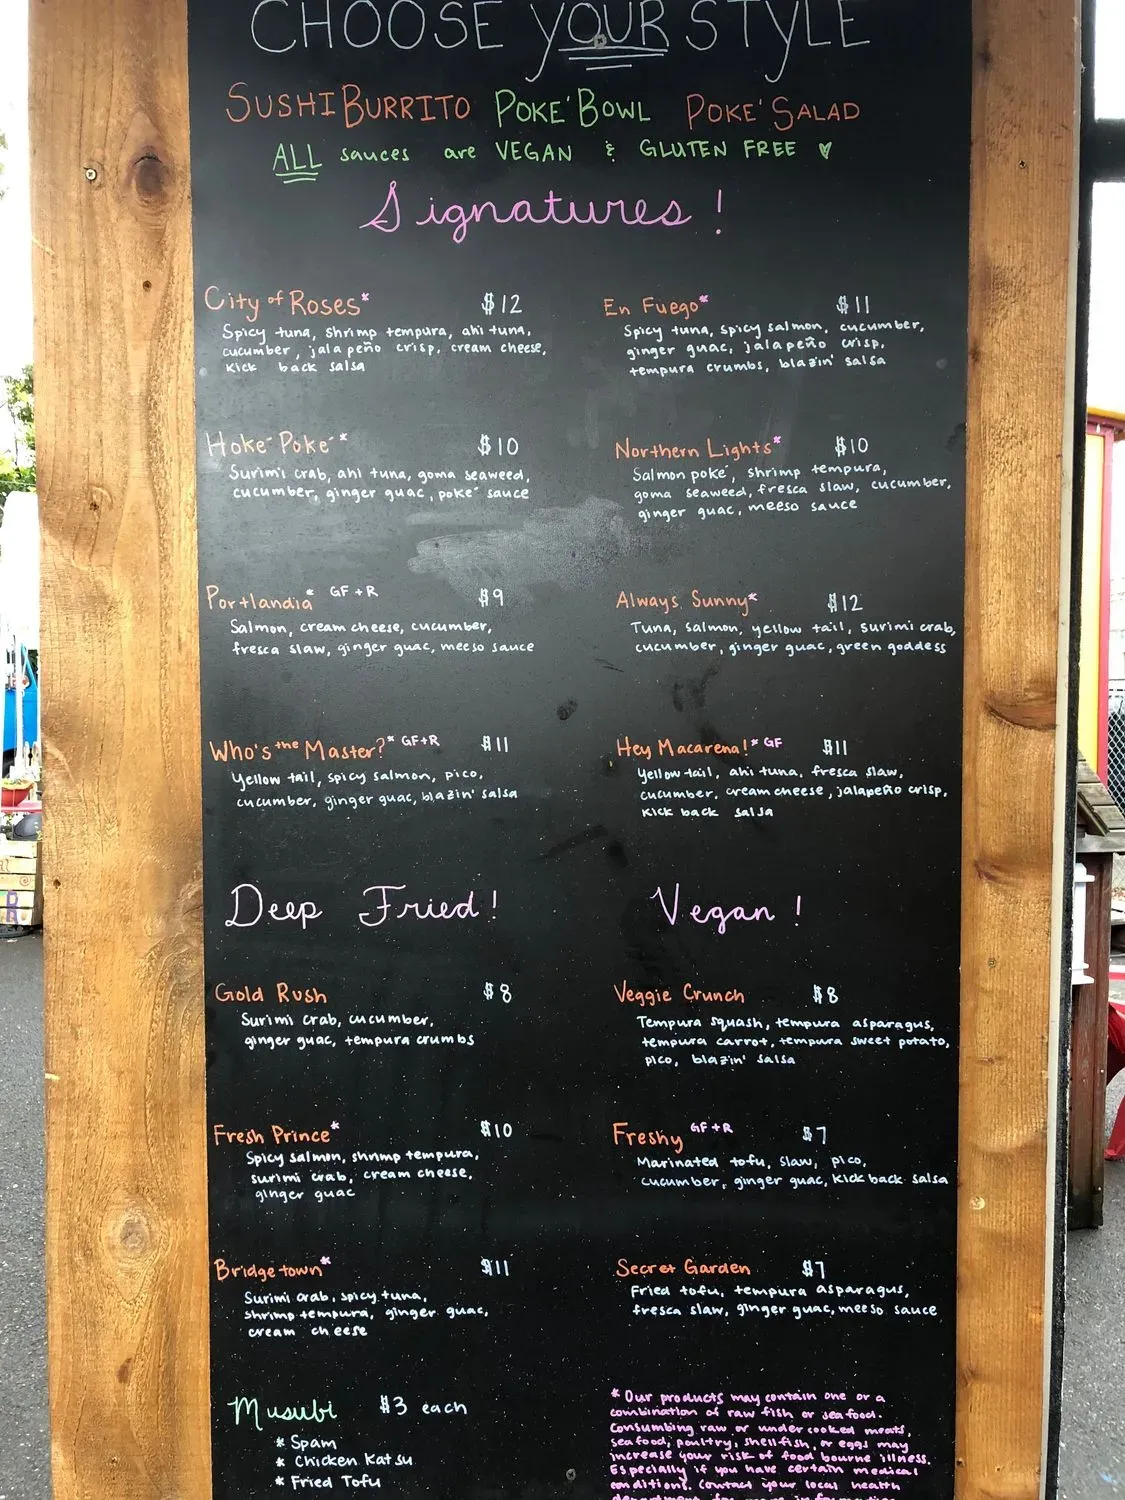 CHOOSE YOUR STYLE
SUSHI BURRITO POKE' BOWL POKE' SALAD
ALL sauces are VEGAN & GLUTEN FREE ♥
Signatures!
City of Roses* $12
Spicy tuna, shrimp tempura, ahi tuna,
cucumber, jalapeño crisp, cream cheese,
kick back salsa
En Fuego* $11
Spicy tuna, spicy salmon, cucumber,
ginger guac, jalapeño crisp,
tempura crumbs, blazin' salsa
Hoke' Poke'* $10
Surimi crab, ahi tuna, goma seaweed,
cucumber, ginger guac, poke' sauce
Northern Lights* $10
Salmon poke', shrimp tempura,
goma seaweed, fresca slaw, cucumber,
ginger guac, meeso sauce
Portlandia* GF+R $9
Salmon, cream cheese, cucumber,
fresca slaw, ginger guac, meeso sauce
Always Sunny* $12
Tuna, salmon, yellow tail, surimi crab,
cucumber, ginger guac, green goddess
Who's the Master?* GF+R $11
Yellow tail, spicy salmon, pico,
cucumber, ginger guac, blazin' salsa
Hey Macarena!* GF $11
Yellow tail, ahi tuna, fresca slaw,
cucumber, cream cheese, jalapeño crisp,
kick back salsa
Deep Fried!
Gold Rush $8
Surimi crab, cucumber,
ginger guac, tempura crumbs
Fresh Prince* $10
Spicy salmon, shrimp tempura,
surimi crab, cream cheese,
ginger guac
Bridgetown* $11
Surimi crab, spicy tuna,
shrimp tempura, ginger guac,
cream cheese
Vegan!
Veggie Crunch $8
Tempura squash, tempura asparagus,
tempura carrot, tempura sweet potato,
pico, blazin' salsa
Freshy GF+R $7
Marinated tofu, slaw, pico,
cucumber, ginger guac, kick back salsa
Secret Garden $7
Fried tofu, tempura asparagus,
fresca slaw, ginger guac, meeso sauce
Musubi $3 each
* Spam
* Chicken Katsu
* Fried Tofu
* Our products may contain one or a
combination of raw fish or seafood.
Consumbing raw or under cooked meats,
seafood, poultry, shellfish, or eggs may
increase your risk of food bourne illness.
Especially if you have certain medical
conditions. Contact your local health